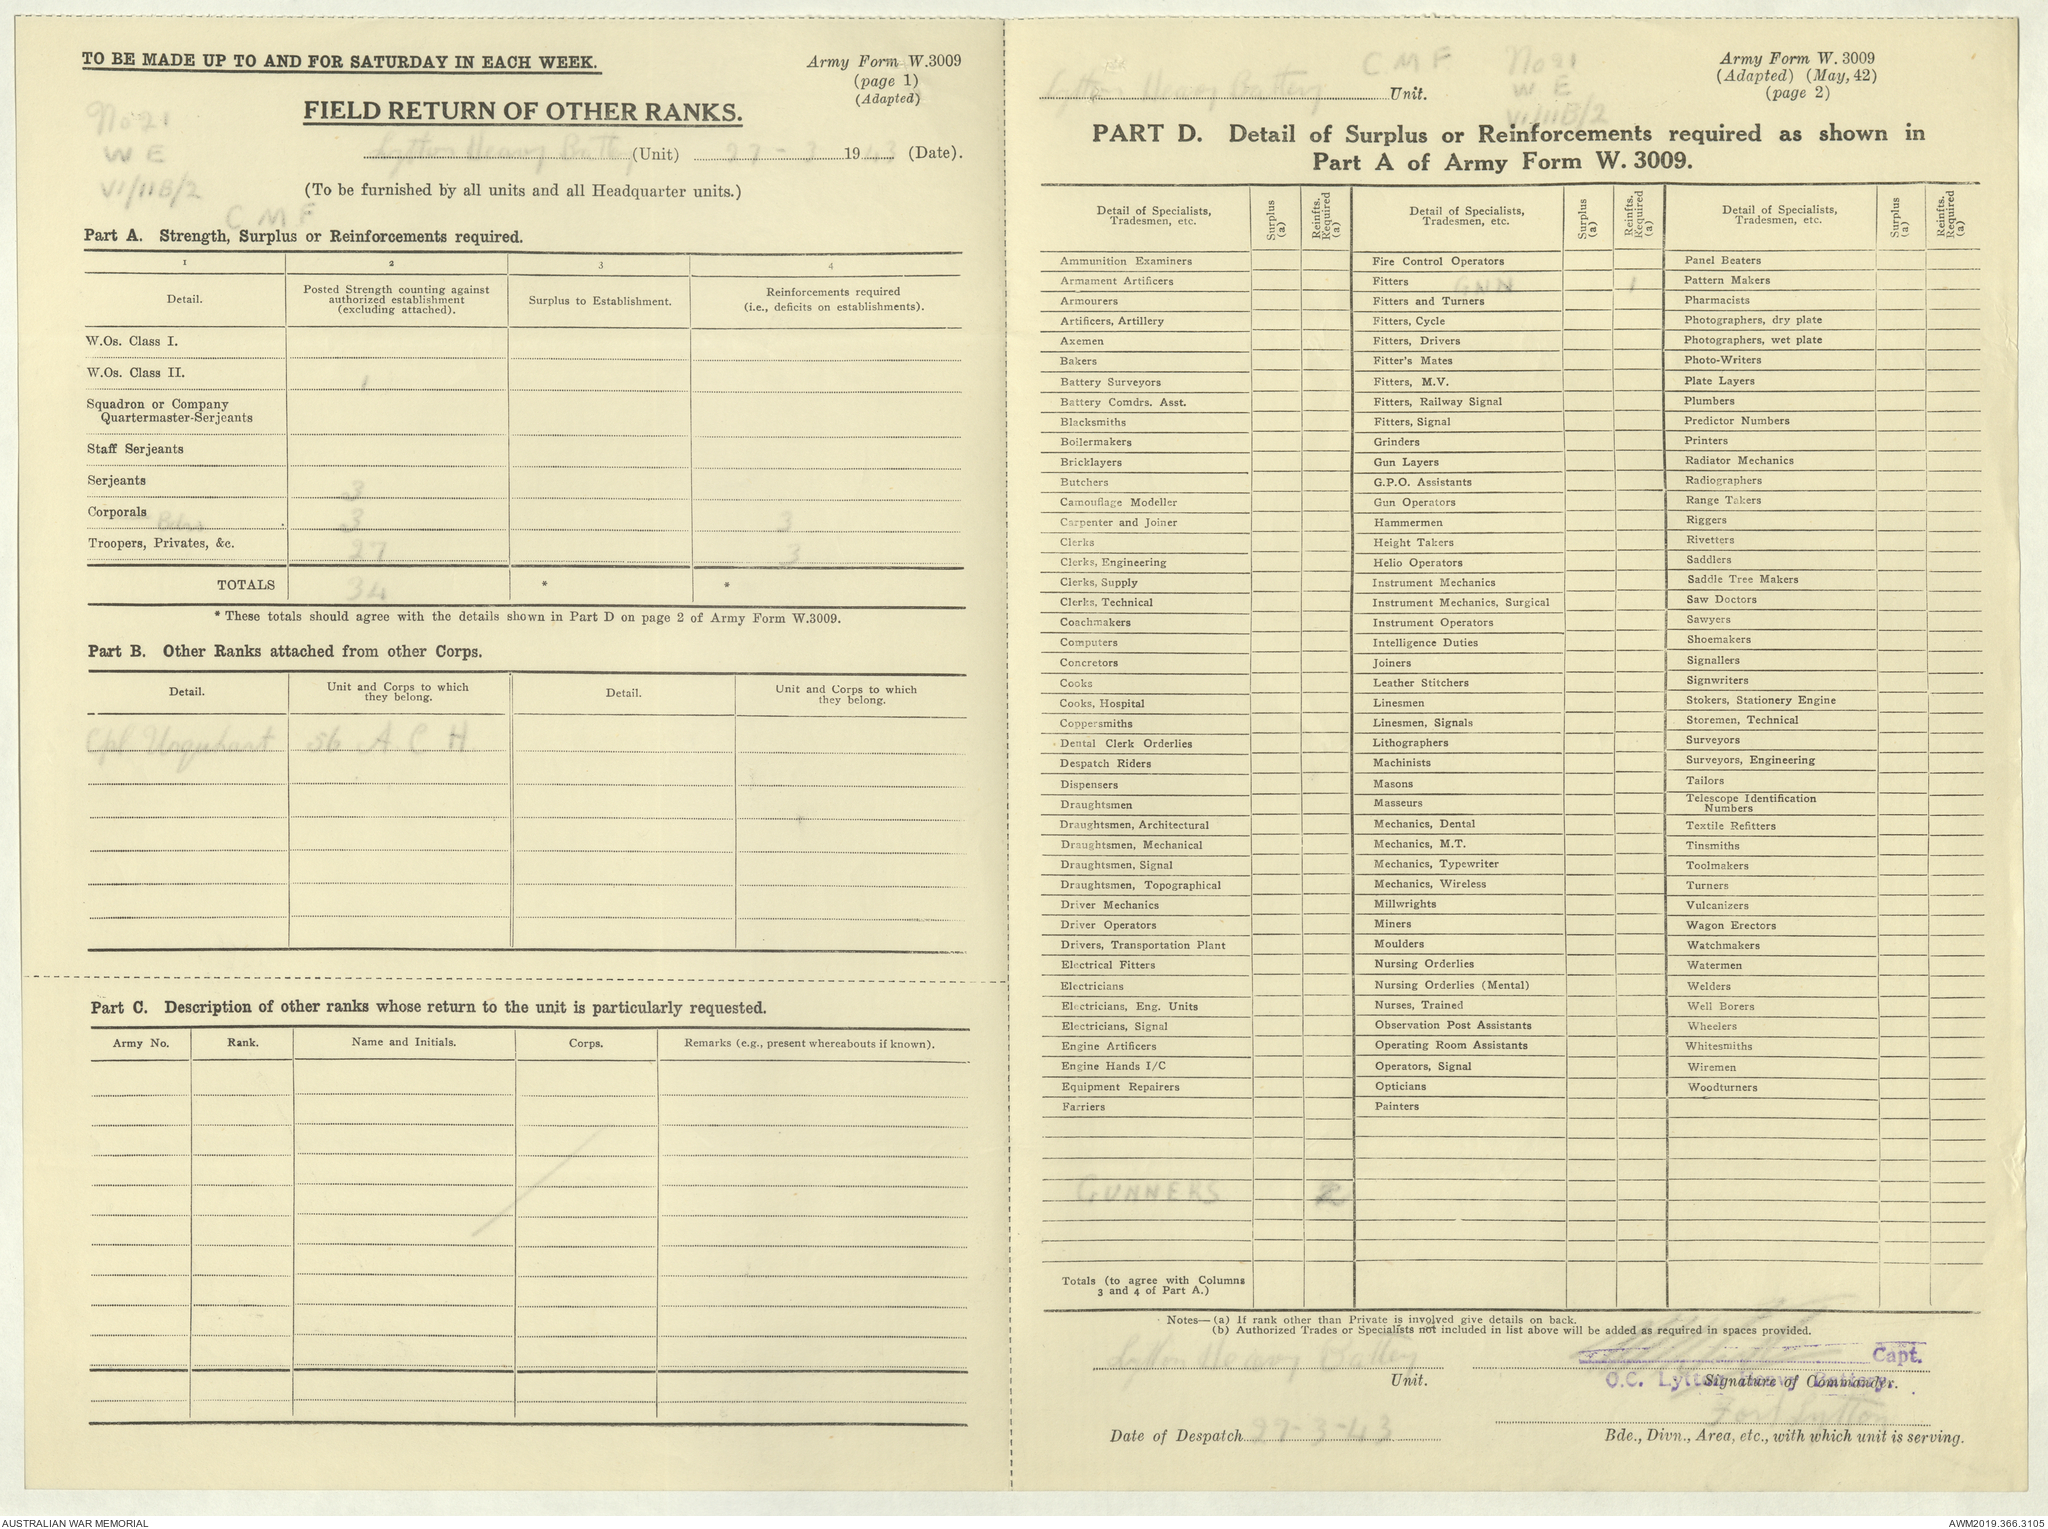 TO BE MADE UP TO AND FOR SATURDAY IN EACH WEEK.
Army Form W.3009
(page 1)
(Adapted)
No 21
W E
VI/11B/2
FIELD RETURN OF OTHER RANKS.
Lytton Heavy Battery (Unit) 27-3 1943 (Date).
(To be furnished by all units and all Headquarter units.)
C M F
Part A. Strength, Surplus or Reinforcements required.
1 2 3 4
Detail. Posted Strength counting against authorized establishment (excluding attached). Surplus to Establishment. Reinforcements required (i.e., deficits on establishments).
W.Os. Class I.
W.Os. Class II. 1
Squadron or Company
Quartermaster-Serjeants
Staff Serjeants
Serjeants 3
Corporals 3 3
Troopers, Privates, &c. 27 3
TOTALS 34 * *
* These totals should agree with the details shown in Part D on page 2 of Army Form W.3009.
Part B. Other Ranks attached from other Corps.
Detail. Unit and Corps to which they belong. Detail. Unit and Corps to which they belong.
Cpl Urquhart 56 A C H
Part C. Description of other ranks whose return to the unit is particularly requested.
Army No. Rank. Name and Initials. Corps. Remarks (e.g., present whereabouts if known).
Lytton Heavy Battery Unit.
C M F
No 21
W E
VI/11B/2
Army Form W. 3009
(Adapted) (May, 42)
(page 2)
PART D. Detail of Surplus or Reinforcements required as shown in
Part A of Army Form W. 3009.
Detail of Specialists, Tradesmen, etc. Surplus (a) Reinfts. Required (a) Detail of Specialists, Tradesmen, etc. Surplus (a) Reinfts. Required (a) Detail of Specialists, Tradesmen, etc. Surplus (a) Reinfts. Required (a)
Ammunition Examiners Fire Control Operators Panel Beaters
Armament Artificers Fitters GUN 1 Pattern Makers
Armourers Fitters and Turners Pharmacists
Artificers, Artillery Fitters, Cycle Photographers, dry plate
Axemen Fitters, Drivers Photographers, wet plate
Bakers Fitter's Mates Photo-Writers
Battery Surveyors Fitters, M.V. Plate Layers
Battery Comdrs. Asst. Fitters, Railway Signal Plumbers
Blacksmiths Fitters, Signal Predictor Numbers
Boilermakers Grinders Printers
Bricklayers Gun Layers Radiator Mechanics
Butchers G.P.O. Assistants Radiographers
Camouflage Modeller Gun Operators Range Takers
Carpenter and Joiner Hammermen Riggers
Clerks Height Takers Rivetters
Clerks, Engineering Helio Operators Saddlers
Clerks, Supply Instrument Mechanics Saddle Tree Makers
Clerks, Technical Instrument Mechanics, Surgical Saw Doctors
Coachmakers Instrument Operators Sawyers
Computers Intelligence Duties Shoemakers
Concretors Joiners Signallers
Cooks Leather Stitchers Signwriters
Cooks, Hospital Linesmen Stokers, Stationery Engine
Coppersmiths Linesmen, Signals Storemen, Technical
Dental Clerk Orderlies Lithographers Surveyors
Despatch Riders Machinists Surveyors, Engineering
Dispensers Masons Tailors
Draughtsmen Masseurs Telescope Identification Numbers
Draughtsmen, Architectural Mechanics, Dental Textile Refitters
Draughtsmen, Mechanical Mechanics, M.T. Tinsmiths
Draughtsmen, Signal Mechanics, Typewriter Toolmakers
Draughtsmen, Topographical Mechanics, Wireless Turners
Driver Mechanics Millwrights Vulcanizers
Driver Operators Miners Wagon Erectors
Drivers, Transportation Plant Moulders Watchmakers
Electrical Fitters Nursing Orderlies Watermen
Electricians Nursing Orderlies (Mental) Welders
Electricians, Eng. Units Nurses, Trained Well Borers
Electricians, Signal Observation Post Assistants Wheelers
Engine Artificers Operating Room Assistants Whitesmiths
Engine Hands I/C Operators, Signal Wiremen
Equipment Repairers Opticians Woodturners
Farriers Painters
GUNNERS 2
Totals (to agree with Columns
3 and 4 of Part A.)
Notes—(a) If rank other than Private is involved give details on back.
(b) Authorized Trades or Specialists not included in list above will be added as required in spaces provided.
Lytton Heavy Battery Capt.
Unit. O.C. Lytton Heavy Battery.
Signature of Commander.
Fort Lytton
Date of Despatch 27-3-43 Bde., Divn., Area, etc., with which unit is serving.
AUSTRALIAN WAR MEMORIAL AWM2019.366.3105